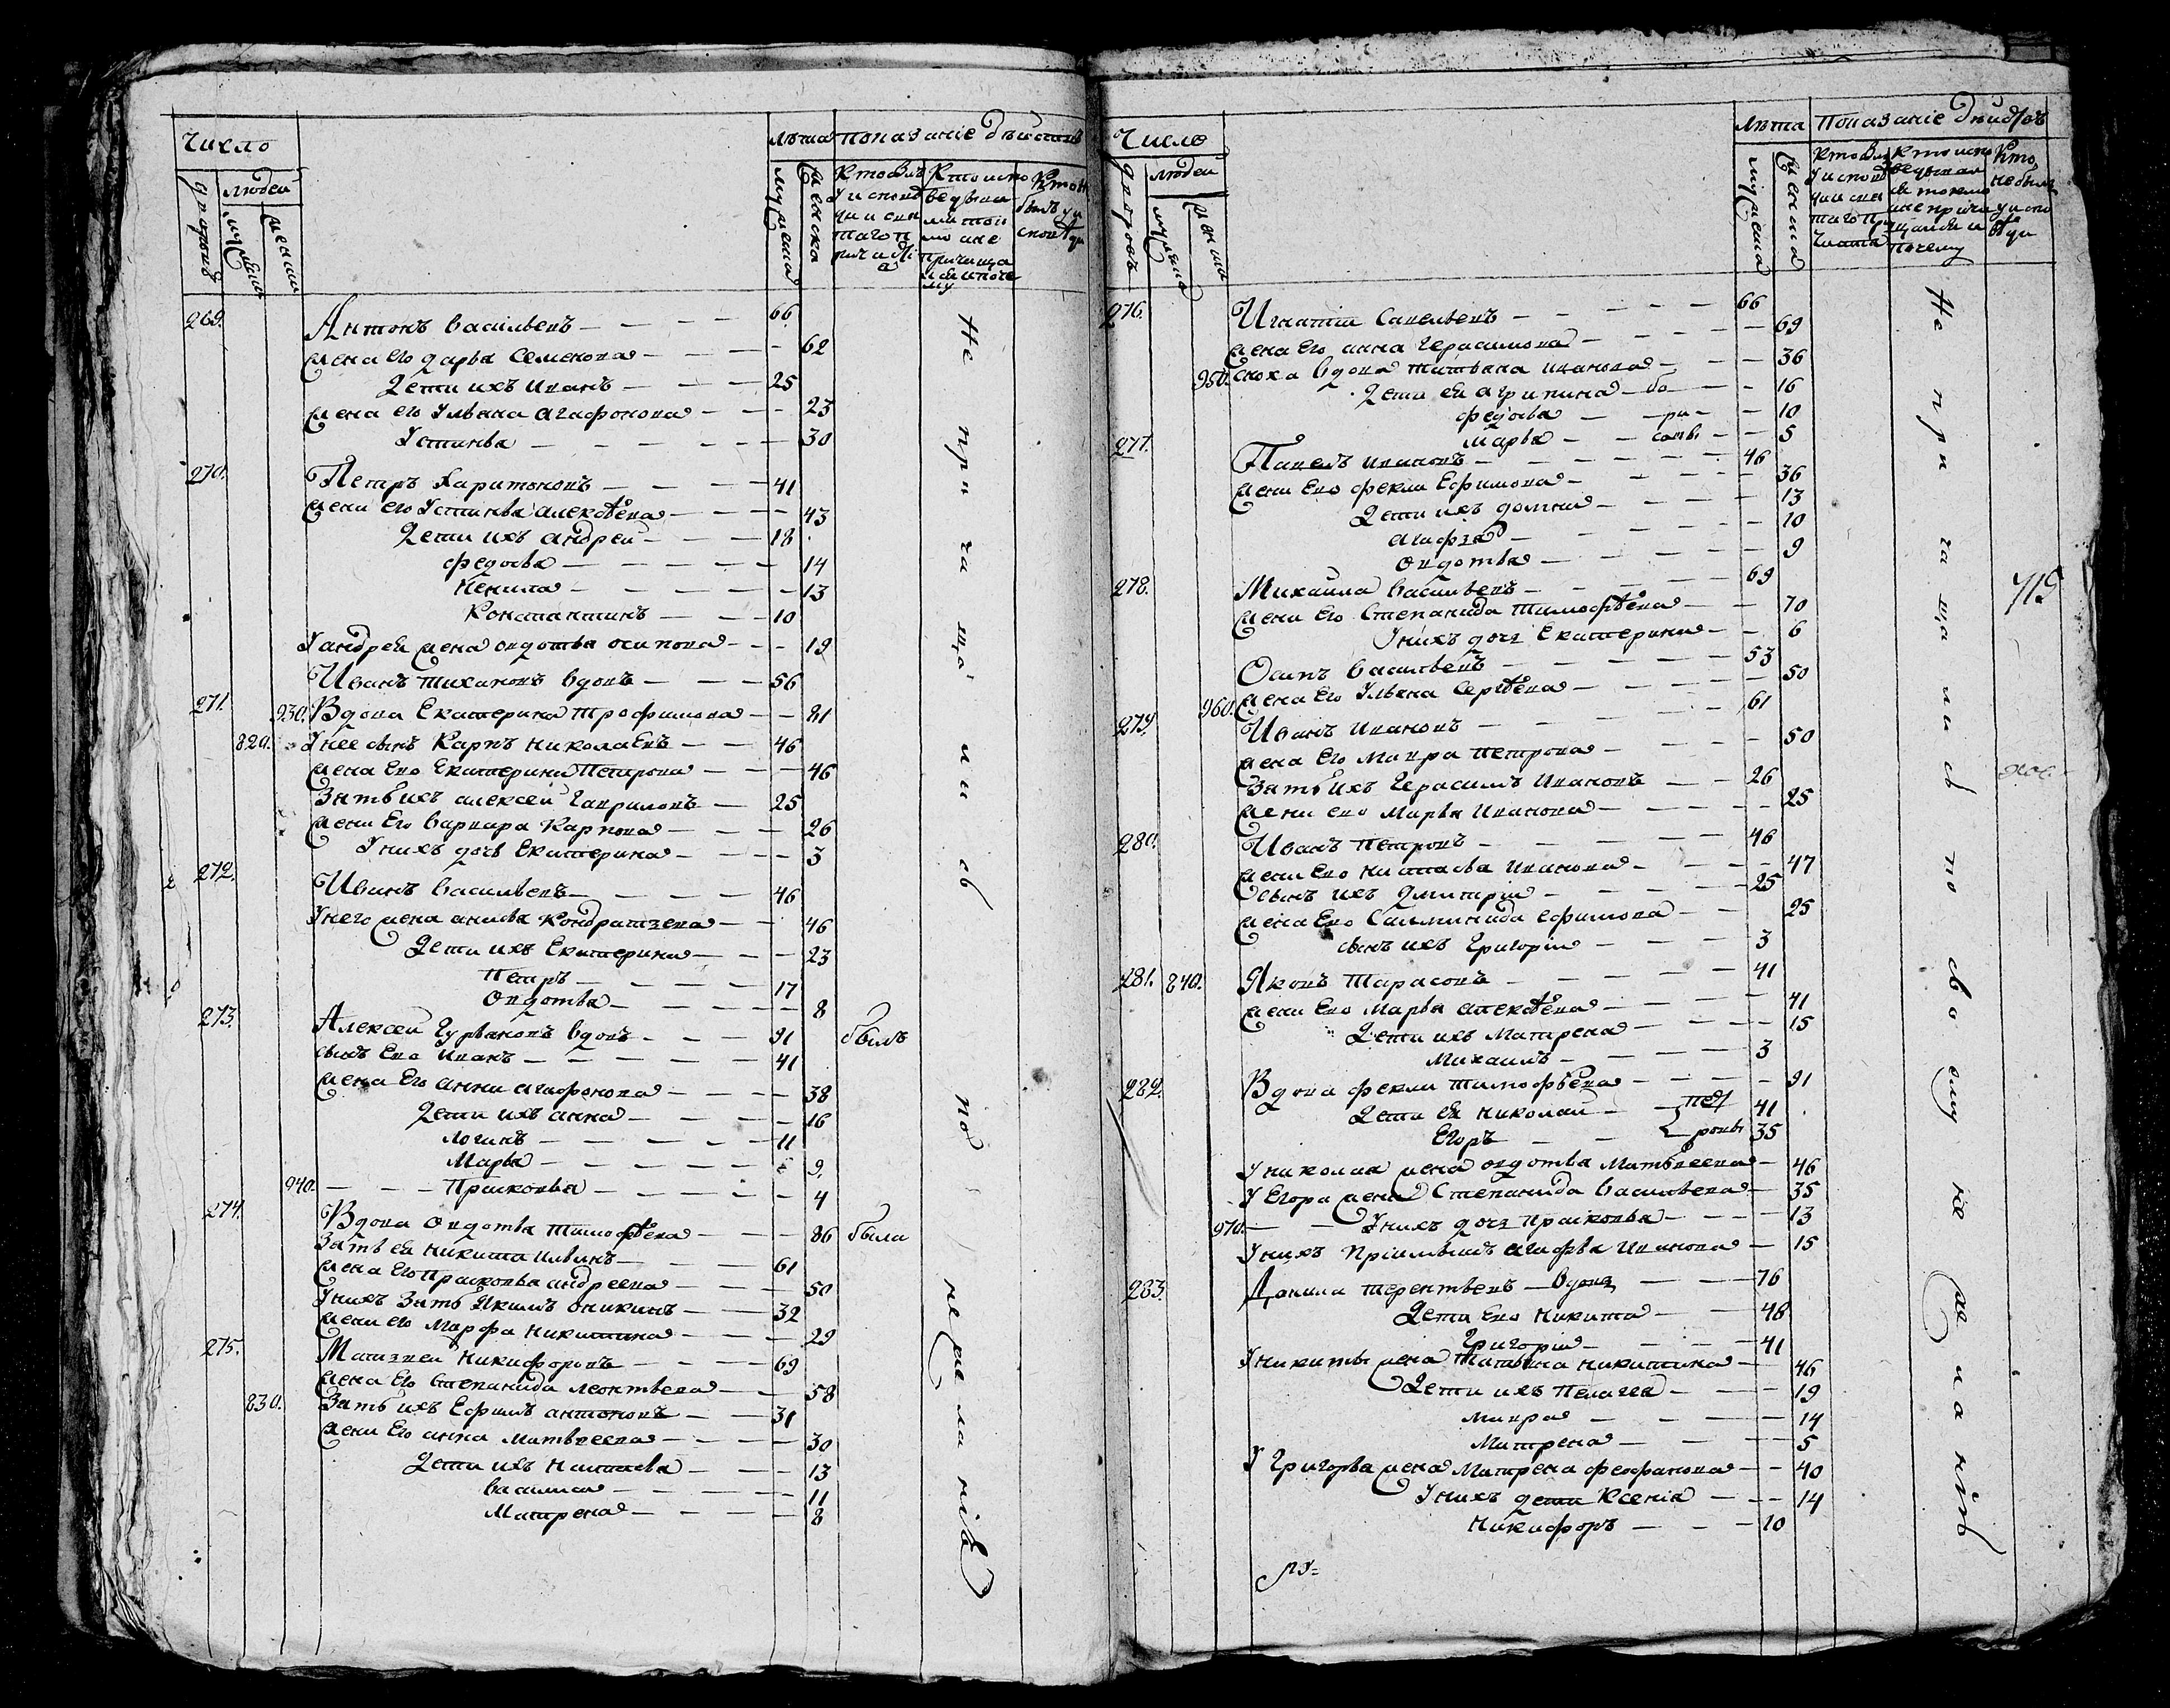 Число
лѣта показаніе дѣйства
дворовъ
людей
мужеска
женска
мужеска
женска
Кто былъ у исповѣди и святаго причастія
Кто исповѣдывались токмо а не причащались и почему
Кто не былъ у исповѣди
269. Антонъ Васильевъ 66
жена его Дарья Семенова 62
Дети ихъ Иванъ 25
жена его Ульяна Агафонова 23
Устинья 30
270. Петръ Харитоновъ 41
жена его Устинья Алексѣева 43
Дети ихъ Андрей 18
Федосья 14
Ненила 13
Константинъ 10
У андрея жена овдотья осипова 19
Иванъ Тихановъ вдовъ 56
271. 930. Вдова Екатерина Трофимова 81
820. У нее сынъ Карпъ Николаевъ 46
жена ево Екатерина Петрова 46
Зять ихъ алексей Гавриловъ 25
жена Его Варвара Карпова 26
У нихъ дочь Екатерина 3
272. Иванъ Васильевъ 46
У него жена анисья Кондратьева 46
Дети ихъ Екатерина 23
Петръ 17
Овдотья 8
273. Алексей Гурьяновъ вдовъ 91 былъ
сынъ Ево Иванъ 41
жена Его анна агафонова 38
Дети ихъ анна 16
Логинъ 11
Марья 9
940. Прасковья 4
274. Вдова Овдотья Тимофѣева 86 была
Зять ея Никита Ильинъ 61
жена Его Прасковья андреева 50
У нихъ Зять Якимъ Оникинъ 32
жена его Марфа Никитина 29
275. Матвей Никифоровъ 69
жена Его Степанида Леонтьева 58
830. Зять ихъ Ефимъ антоновъ 31
жена Его анна Матвеева 30
Дети ихъ Настасья 13
Василиса 11
Матрена 8
Не причащались по нежеланію
Число
лѣта Показаніе дѣйствъ
дворовъ
людей
мужеска
женска
мужеска
женска
Кто былъ у исповѣди и святаго причастія
Кто исповѣдывался токмо а не причащался и почему
Кто не былъ у исповѣди
276. Игнатій Савельевъ 66
жена его анна Герасимова 69
950. сноха вдова Татьяна иванова 36
Дети ея агрипина 16
Федосья 10
Марья 5
277. Павелъ ивановъ 46
жена Ево Фекла Ефимова 36
Дети ихъ Домна 13
агафья 10
Овдотья 9
278. Михайла Васильевъ 69
жена Его Степанида Тимофѣева 70
У нихъ дочь Екатерина 6
Осипъ Васильевъ 53
960. жена Его Ульяна Сергѣева 50
279. Иванъ Ивановъ 61
жена Его Мавра Петрова 50
Зять ихъ Герасимъ Ивановъ 26
жена ево Марья Иванова 25
280. Иванъ Петровъ 46
жена Ево Настасья Иванова 47
Сынъ ихъ Дмитрій 25
жена Ево Ефимова 25
сынъ ихъ Григорій 3
281. 840. Яковъ Тарасовъ 41
жена Ево Марья алексѣева 41
Дети ихъ Матрена 15
Михаилъ 3
282. Вдова Фекла Тимофѣева 91
Дети ея Николай 41
Егоръ 35
Петровы
У николая жена овдотья Матвеева 46
У Егора жена Степанида Васильева 35
970. У нихъ дочь Прасковья 13
У нихъ пріимышъ агафья Иванова 15
283. Данила Терентьевъ вдовъ 76
Дети Ево Никита 48
Григорій 41
У никиты жена Татьяна никитина 46
Дети ихъ Пелагея 19
Мавра 14
Матрена 5
У Григорья жена Матрена феофанова 40
У нихъ дети Ксенія 14
Никифоръ 10
Не причащались по своему нежеланію
419